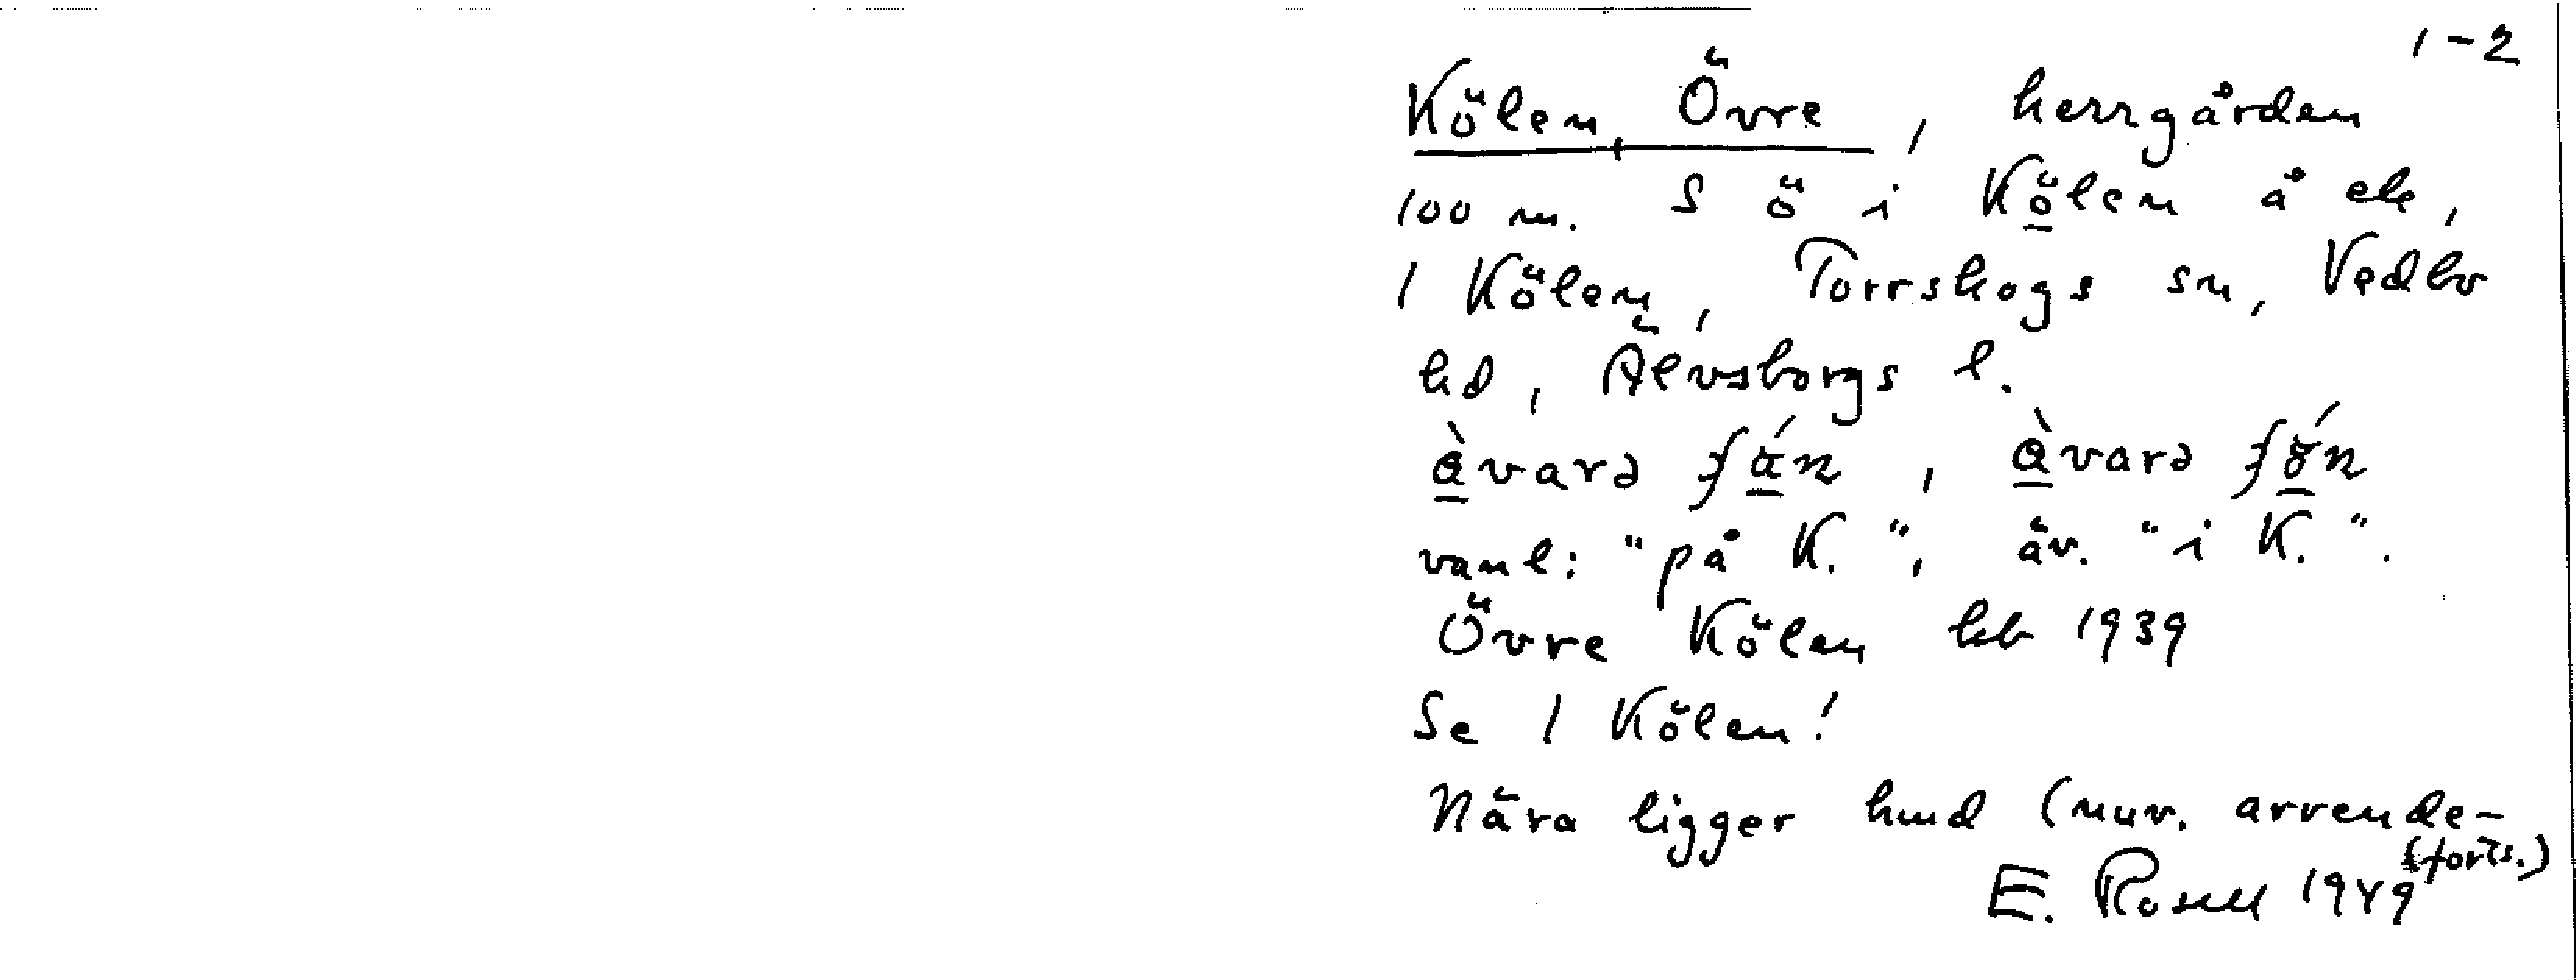 1-2
Kölen, Övre, herrgården
100 m. S ö i Kölen å ek,
1 Kölen, Torrskogs sn, Vedbo
hd, Älvsborgs l.
vanl: "på K.", äv. "i K.".
Övre Kölen kb 1939
Se 1 Kölen!
Nära ligger hmd (nuv. arrende-
(forts.)
E. Rosell 1949